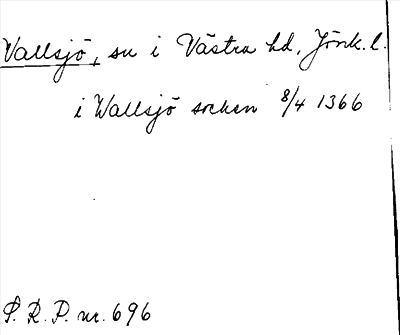 Vallsjö, sn i Västra hd, Jönk. l.
i Wallsjö socken 8/4 1366
S. R. P. nr. 696